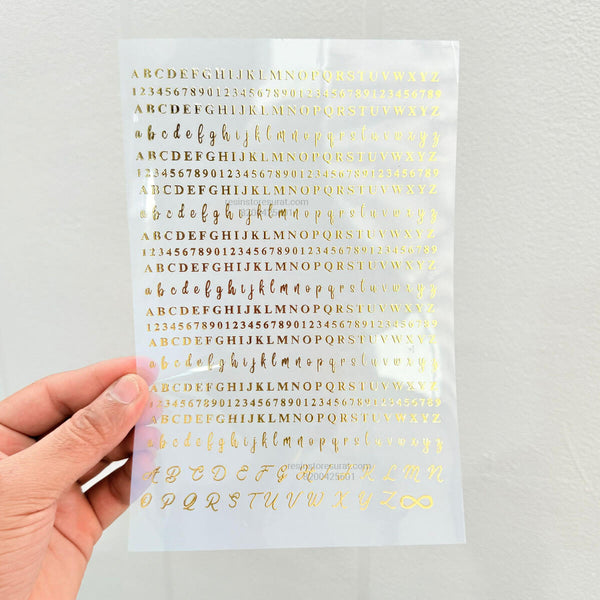 ABCDEFGHIJKLMNOPQRSTUVWXYZ
123456789012345678901234567890123456789
ABCDEFGHIJKLMNOPQRSTUVWXYZ
abcdefghijklmnopqrstuvwxyz
ABCDEFGHIJKLMNOPQRSTUVWXYZ
123456789012345678901234567890123456789
ABCDEFGHIJKLMNOPQRSTUVWXYZ
resinstoresurat.com
abcdefghijklmnopqrstuvwxyz
ABCDEFGHIJKLMNOPQRSTUVWXYZ
123456789012345678901234567890123456789
ABCDEFGHIJKLMNOPQRSTUVWXYZ
abcdefghijklmnopqrstuvwxyz
ABCDEFGHIJKLMNOPQRSTUVWXYZ
123456789012345678901234567890123456789
ABCDEFGHIJKLMNOPQRSTUVWXYZ
abcdefghijklmnopqrstuvwxyz
ABCDEFGHIJKLMNOPQRSTUVWXYZ
123456789012345678901234567890123456789
ABCDEFGHIJKLMNOPQRSTUVWXYZ
abcdefghijklmnopqrstuvwxyz
resinstoresurat.com
ABCDEFGHIJKLMN
9200425601
OPQRSTUVWXYZ∞